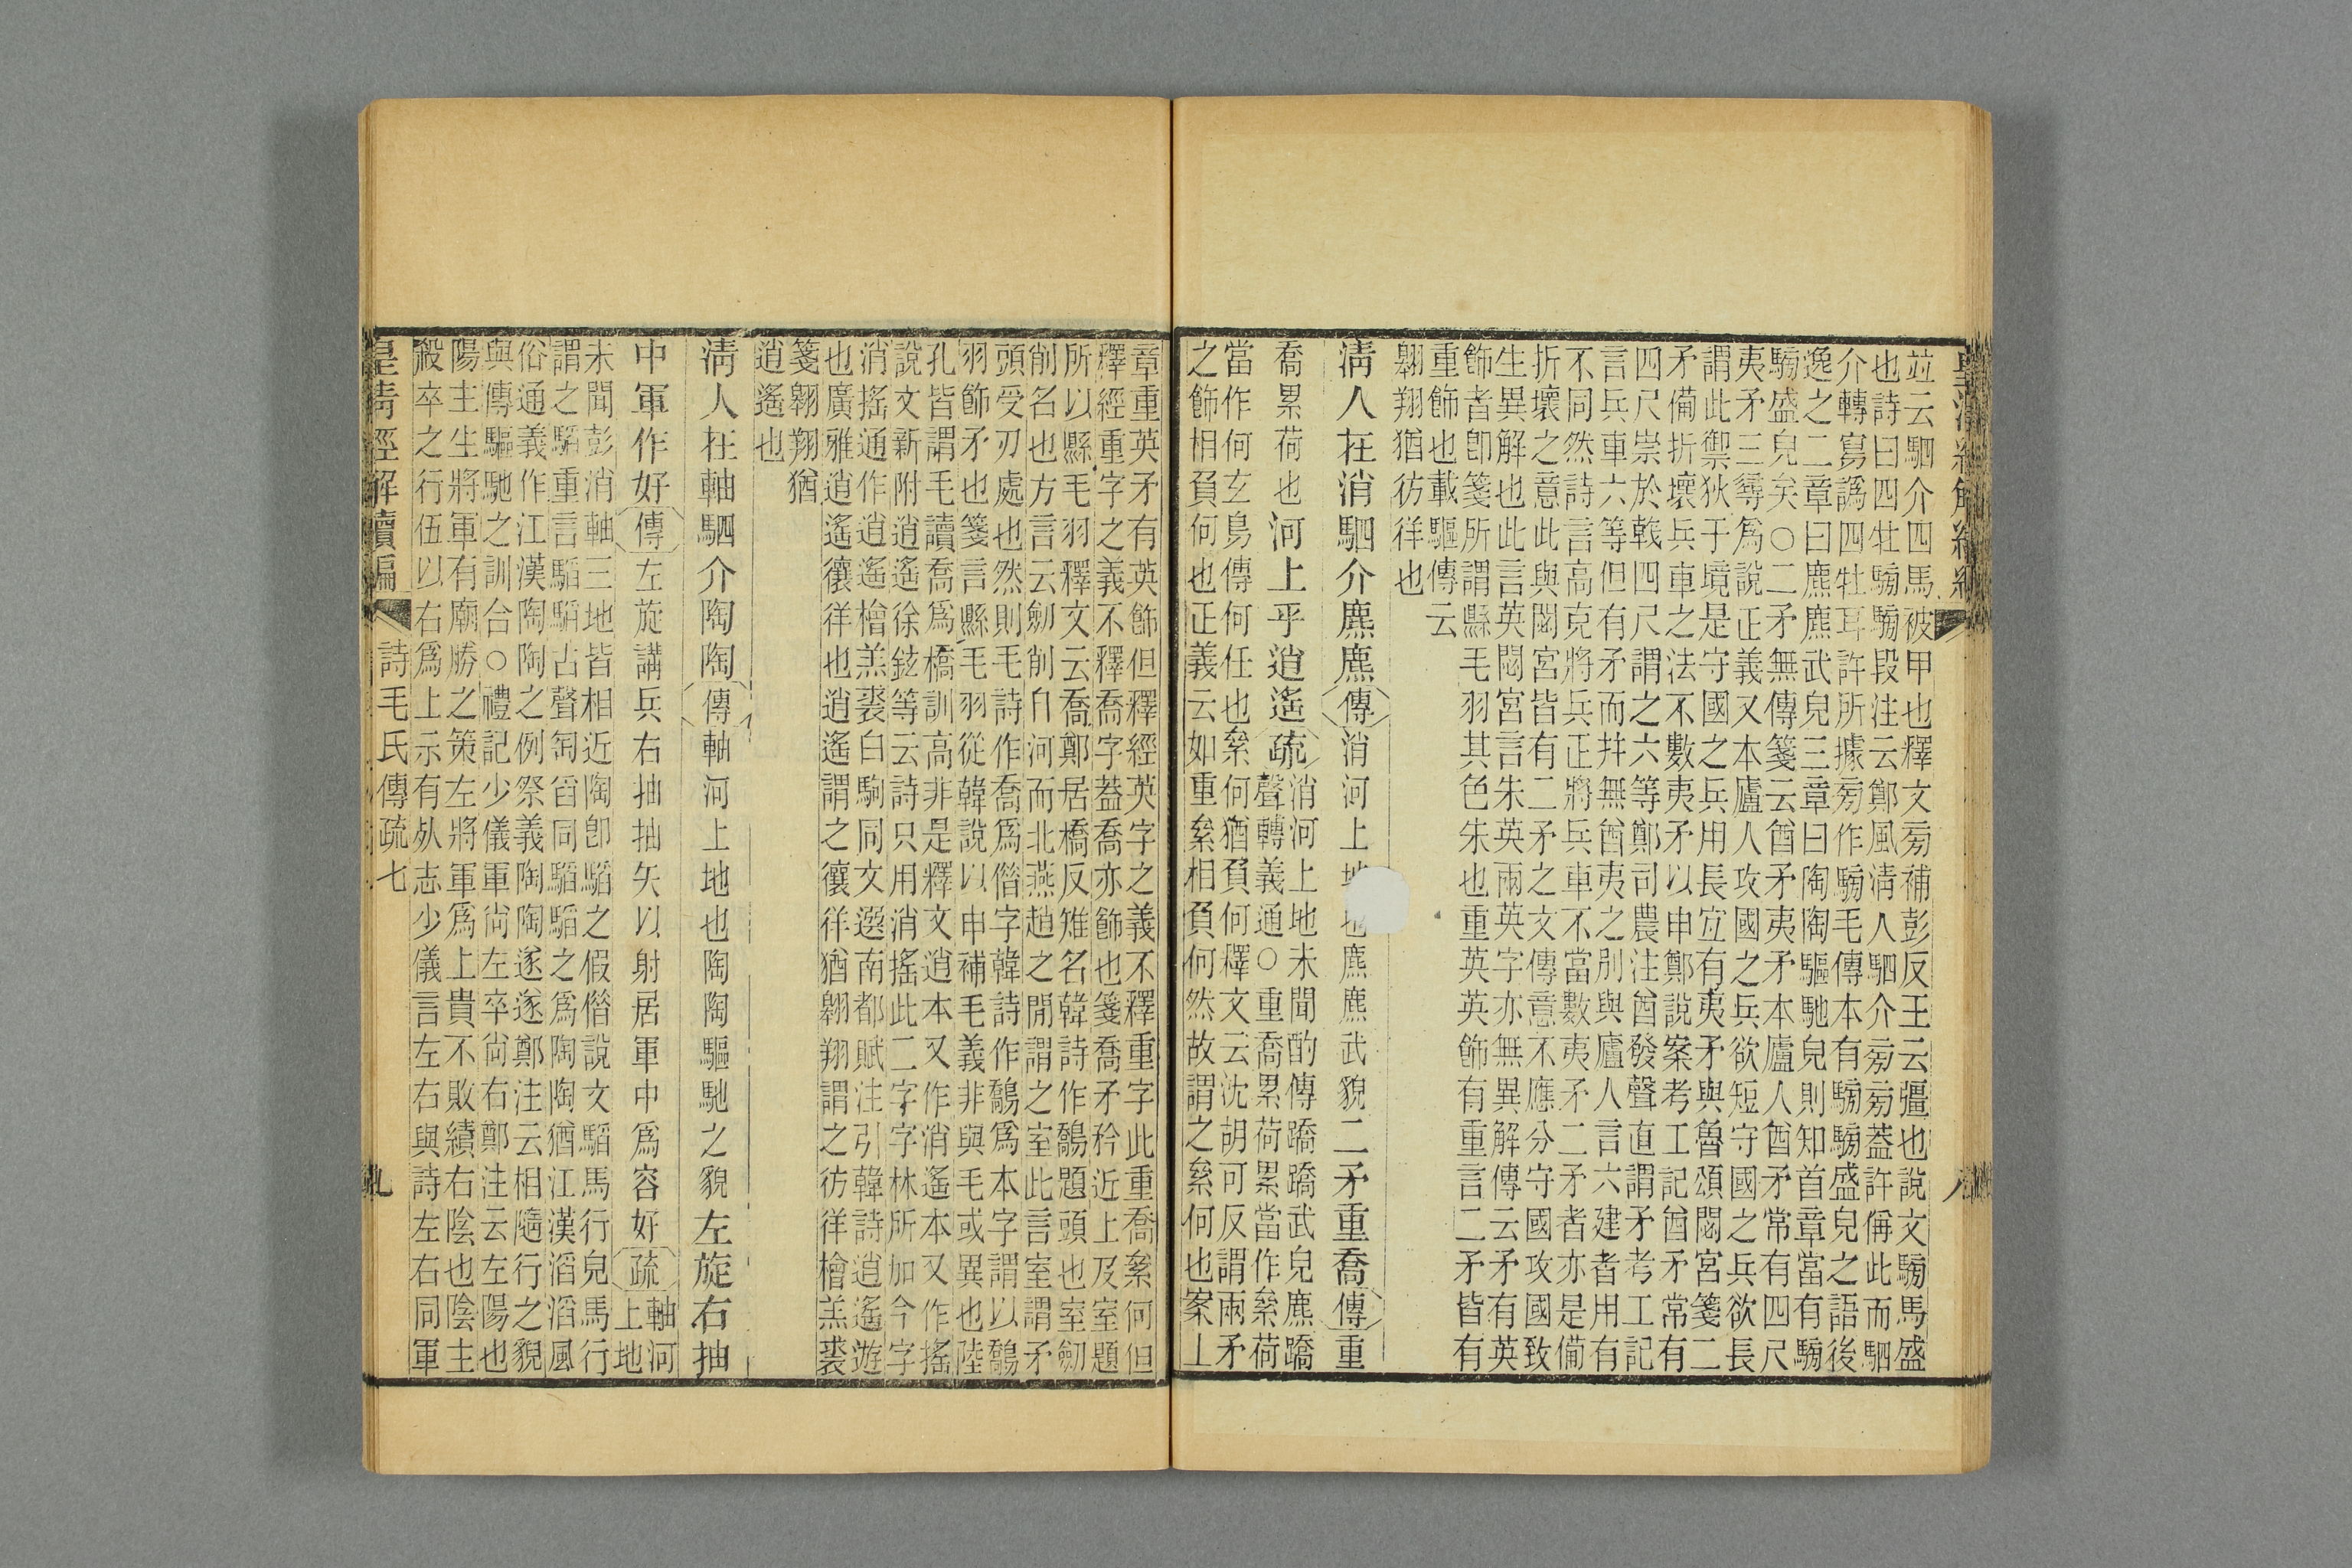 竝云駟介四馬被甲也釋文旁補彭反王云彊也說文騯馬盛
也詩曰四牡騯騯段注云鄭風淸人駟介旁旁蓋許偁此而駟
介轉寫譌四牡耳許所據旁作騯毛傳本有騯騯盛皃之語後
逸之二章曰麃麃武皃三章曰陶陶驅馳皃則知首章當有騯
騯盛皃矣○二矛無傳箋云酋矛夷矛本廬人酋矛常有四尺
夷矛三尋爲說正義又本廬人攻國之兵欲短守國之兵欲長
謂此禦狄于境是守國之兵用長宐有夷矛與魯頌閟宮箋二
矛備折壞兵車之法不數夷矛以申鄭說案考工記酋矛常有
四尺崇於戟四尺謂之六等鄭司農注酋發聲直謂矛考工記
言兵車六等但有矛而幷無酋夷之別與廬人言六建者用有
不同然詩言高克將兵正將兵車不當數夷矛二矛者亦是備
折壞之意此與閟宮皆有二矛之文傳意不應分守國攻國致
生異解也此言英閟宮言朱英兩英字亦無異解傳云矛有英
飾者卽箋所謂縣毛羽其色朱也重英英飾有重言二矛皆有
重飾也載驅傳云
翱翔猶彷徉也
淸人在消駟介麃麃傳消河上地也麃麃武貌二矛重喬傳重
喬累荷也河上乎逍遙疏消河上地未聞酌傳蹻蹻武皃麃蹻
聲轉義通○重喬累荷累當作絫荷
當作何玄鳥傳何任也絫何猶負何釋文云沈胡可反謂兩矛
之飾相負何也正義云如重絫相負何然故謂之絫何也案上
章重英矛有英飾但釋經英字之義不釋重字此重喬絫何但
釋經重字之義不釋喬字蓋喬亦飾也箋喬矛矜近上及室題
所以縣毛羽釋文云喬鄭居橋反雉名韓詩作鷮題頭也室劒
削名也方言云劒削自河而北燕趙之閒謂之室此言室謂矛
頭受刃處也然則毛詩作喬爲僭字韓詩作鷮爲本字謂以鷮
羽飾矛也箋言縣毛羽從韓說以申補毛義非與毛或異也陸
孔皆謂毛讀喬爲橋訓高非是釋文逍本又作消遙本又作搖
說文新附逍遙徐鉉等云詩只用消搖此二字字林所加今字
消搖通作逍遙檜羔裘白駒同文選南都賦注引韓詩逍遙遊
也廣雅逍遙忀徉也逍遙謂之忀徉猶翱翔謂之彷徉檜羔裘
箋翱翔猶
逍遙也
淸人在軸駟介陶陶傳軸河上地也陶陶驅馳之貌左旋右抽
中軍作好傳左旋講兵右抽抽矢以射居軍中爲容好疏軸河
上地
未聞彭消軸三地皆相近陶卽騊之假僭說文騊馬行皃馬行
謂之騊重言騊騊古聲匋舀同騊騊之爲陶陶猶江漢滔滔風
俗通義作江漢陶陶之例祭義陶陶遂遂鄭注云相隨行之貌
與傳驅馳之訓合○禮記少儀軍尙左卒尙右鄭注云左陽也
陽主生將軍有廟勝之策左將軍爲上貴不敗績右陰也陰主
殺卒之行伍以右爲上示有㱽志少儀言左右與詩左右同軍
皇淸經解續編　詩毛氏傳疏七　九